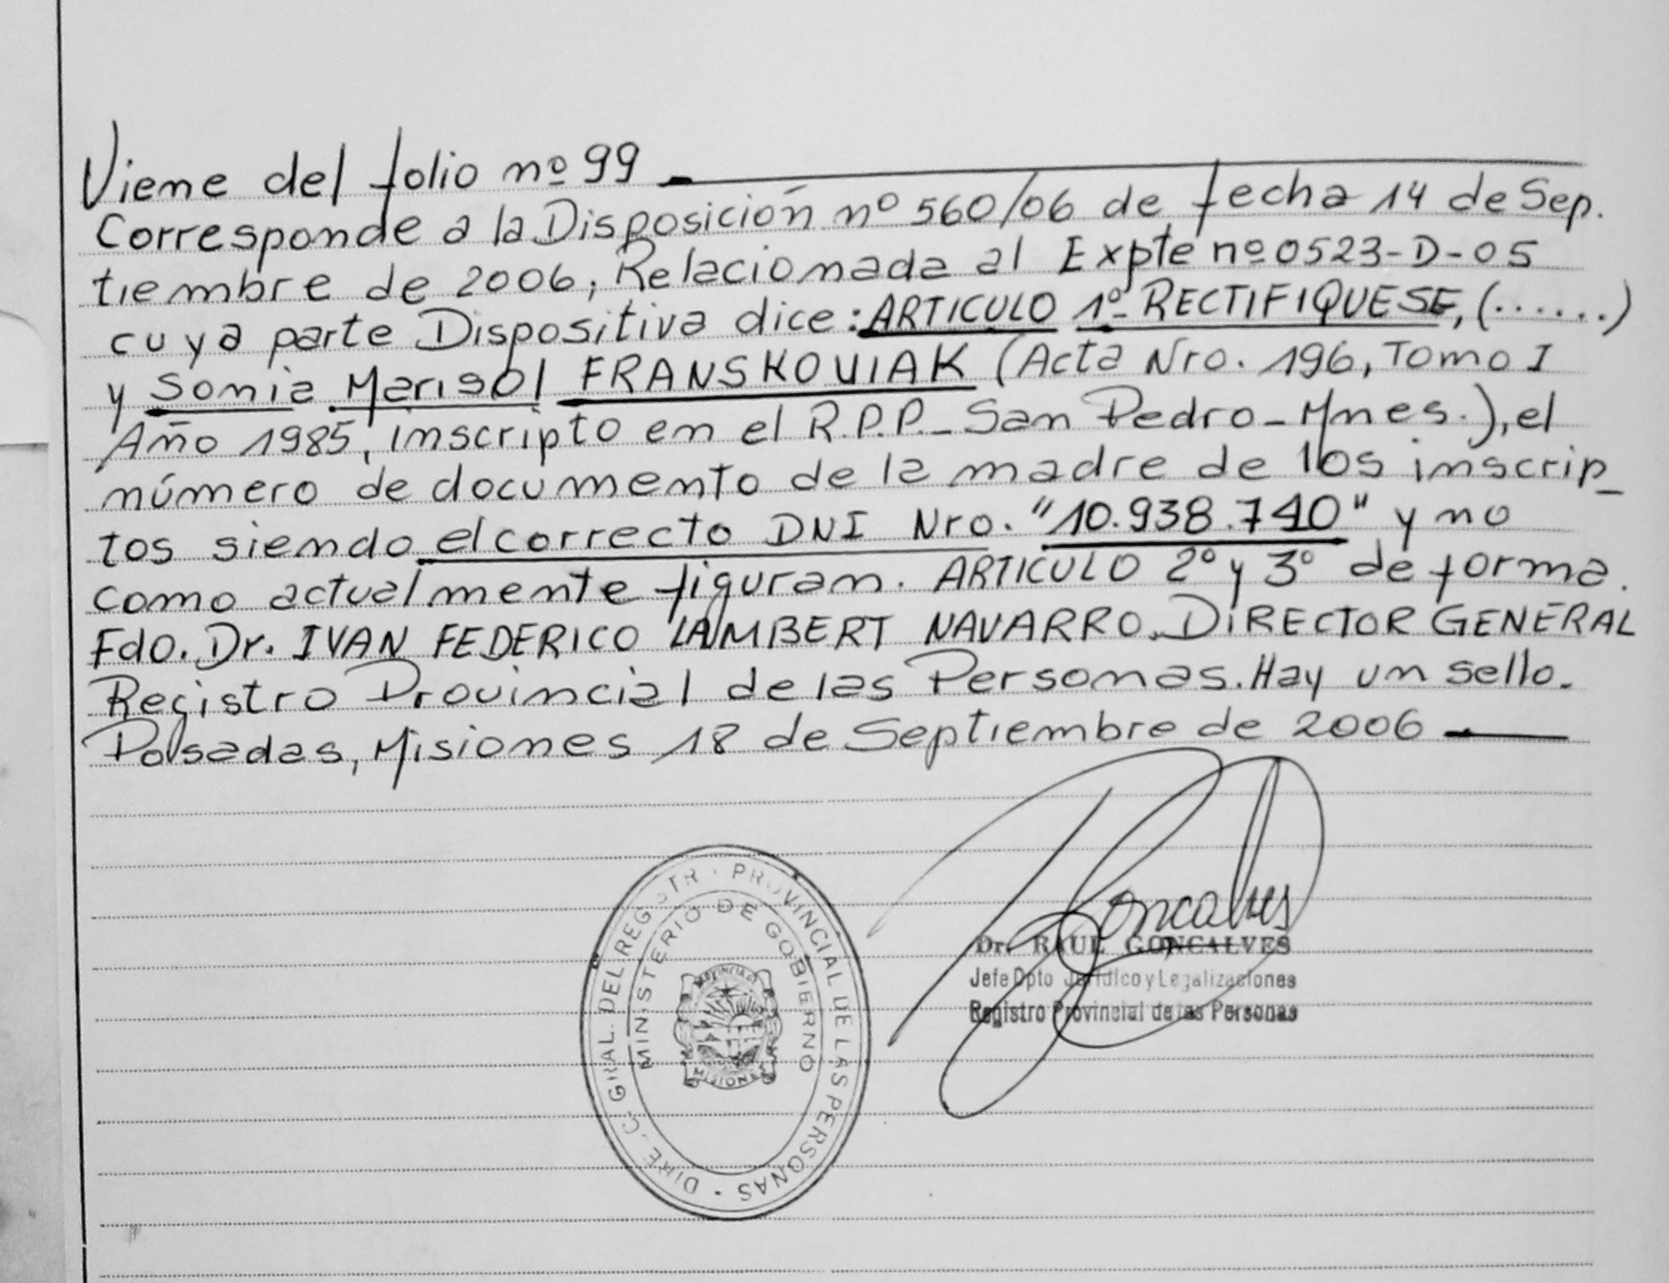 Viene del folio nº 99
Corresponde a la Disposición nº 560/06 de fecha 14 de Sep.
tiembre de 2006, Relacionada al Expte nº 0523-D-05
cuya parte Dispositiva dice: ARTICULO 1º- RECTIFIQUESE, (......)
y Sonia Marisol FRANSKOVIAK (Acta Nro. 196, Tomo I
Año 1985, inscripto en el R.P.P._ San Pedro_Mnes.), el
número de documento de la madre de los inscrip_
tos siendo el correcto DNI Nro. "10.938.740" y no
como actualmente figuran. ARTICULO 2º y 3º de forma.
Fdo. Dr. IVAN FEDERICO LAMBERT NAVARRO. DIRECTOR GENERAL
Registro Provincial de las Personas. Hay un sello.
Posadas, Misiones 18 de Septiembre de 2006
Goncalves
Dr. RAUL GONCALVES
Jefe Dpto Jurídico y Legalizaciones
Registro Provincial de las Personas
GRAL. DEL REGISTR · PROVINCIAL DE LAS PERSONAS ·
MINISTERIO DE GOBIERNO
PROVINCIA D
MISIONES